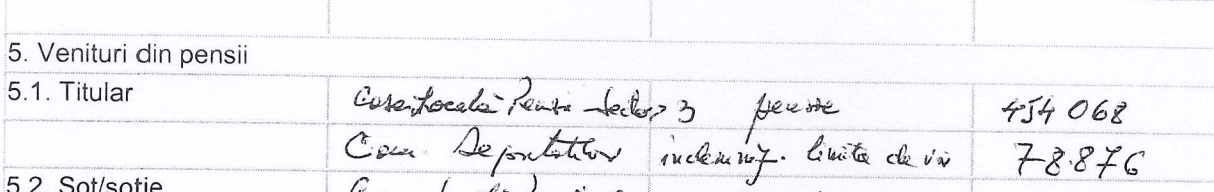 5. Venituri din pensii
5.1. Titular Casa Locală Pensii Sector 3 pensie 454 068
Cam. Deputatilor indemniz. limita de vâr 78.876
5.2. Sot/sotie